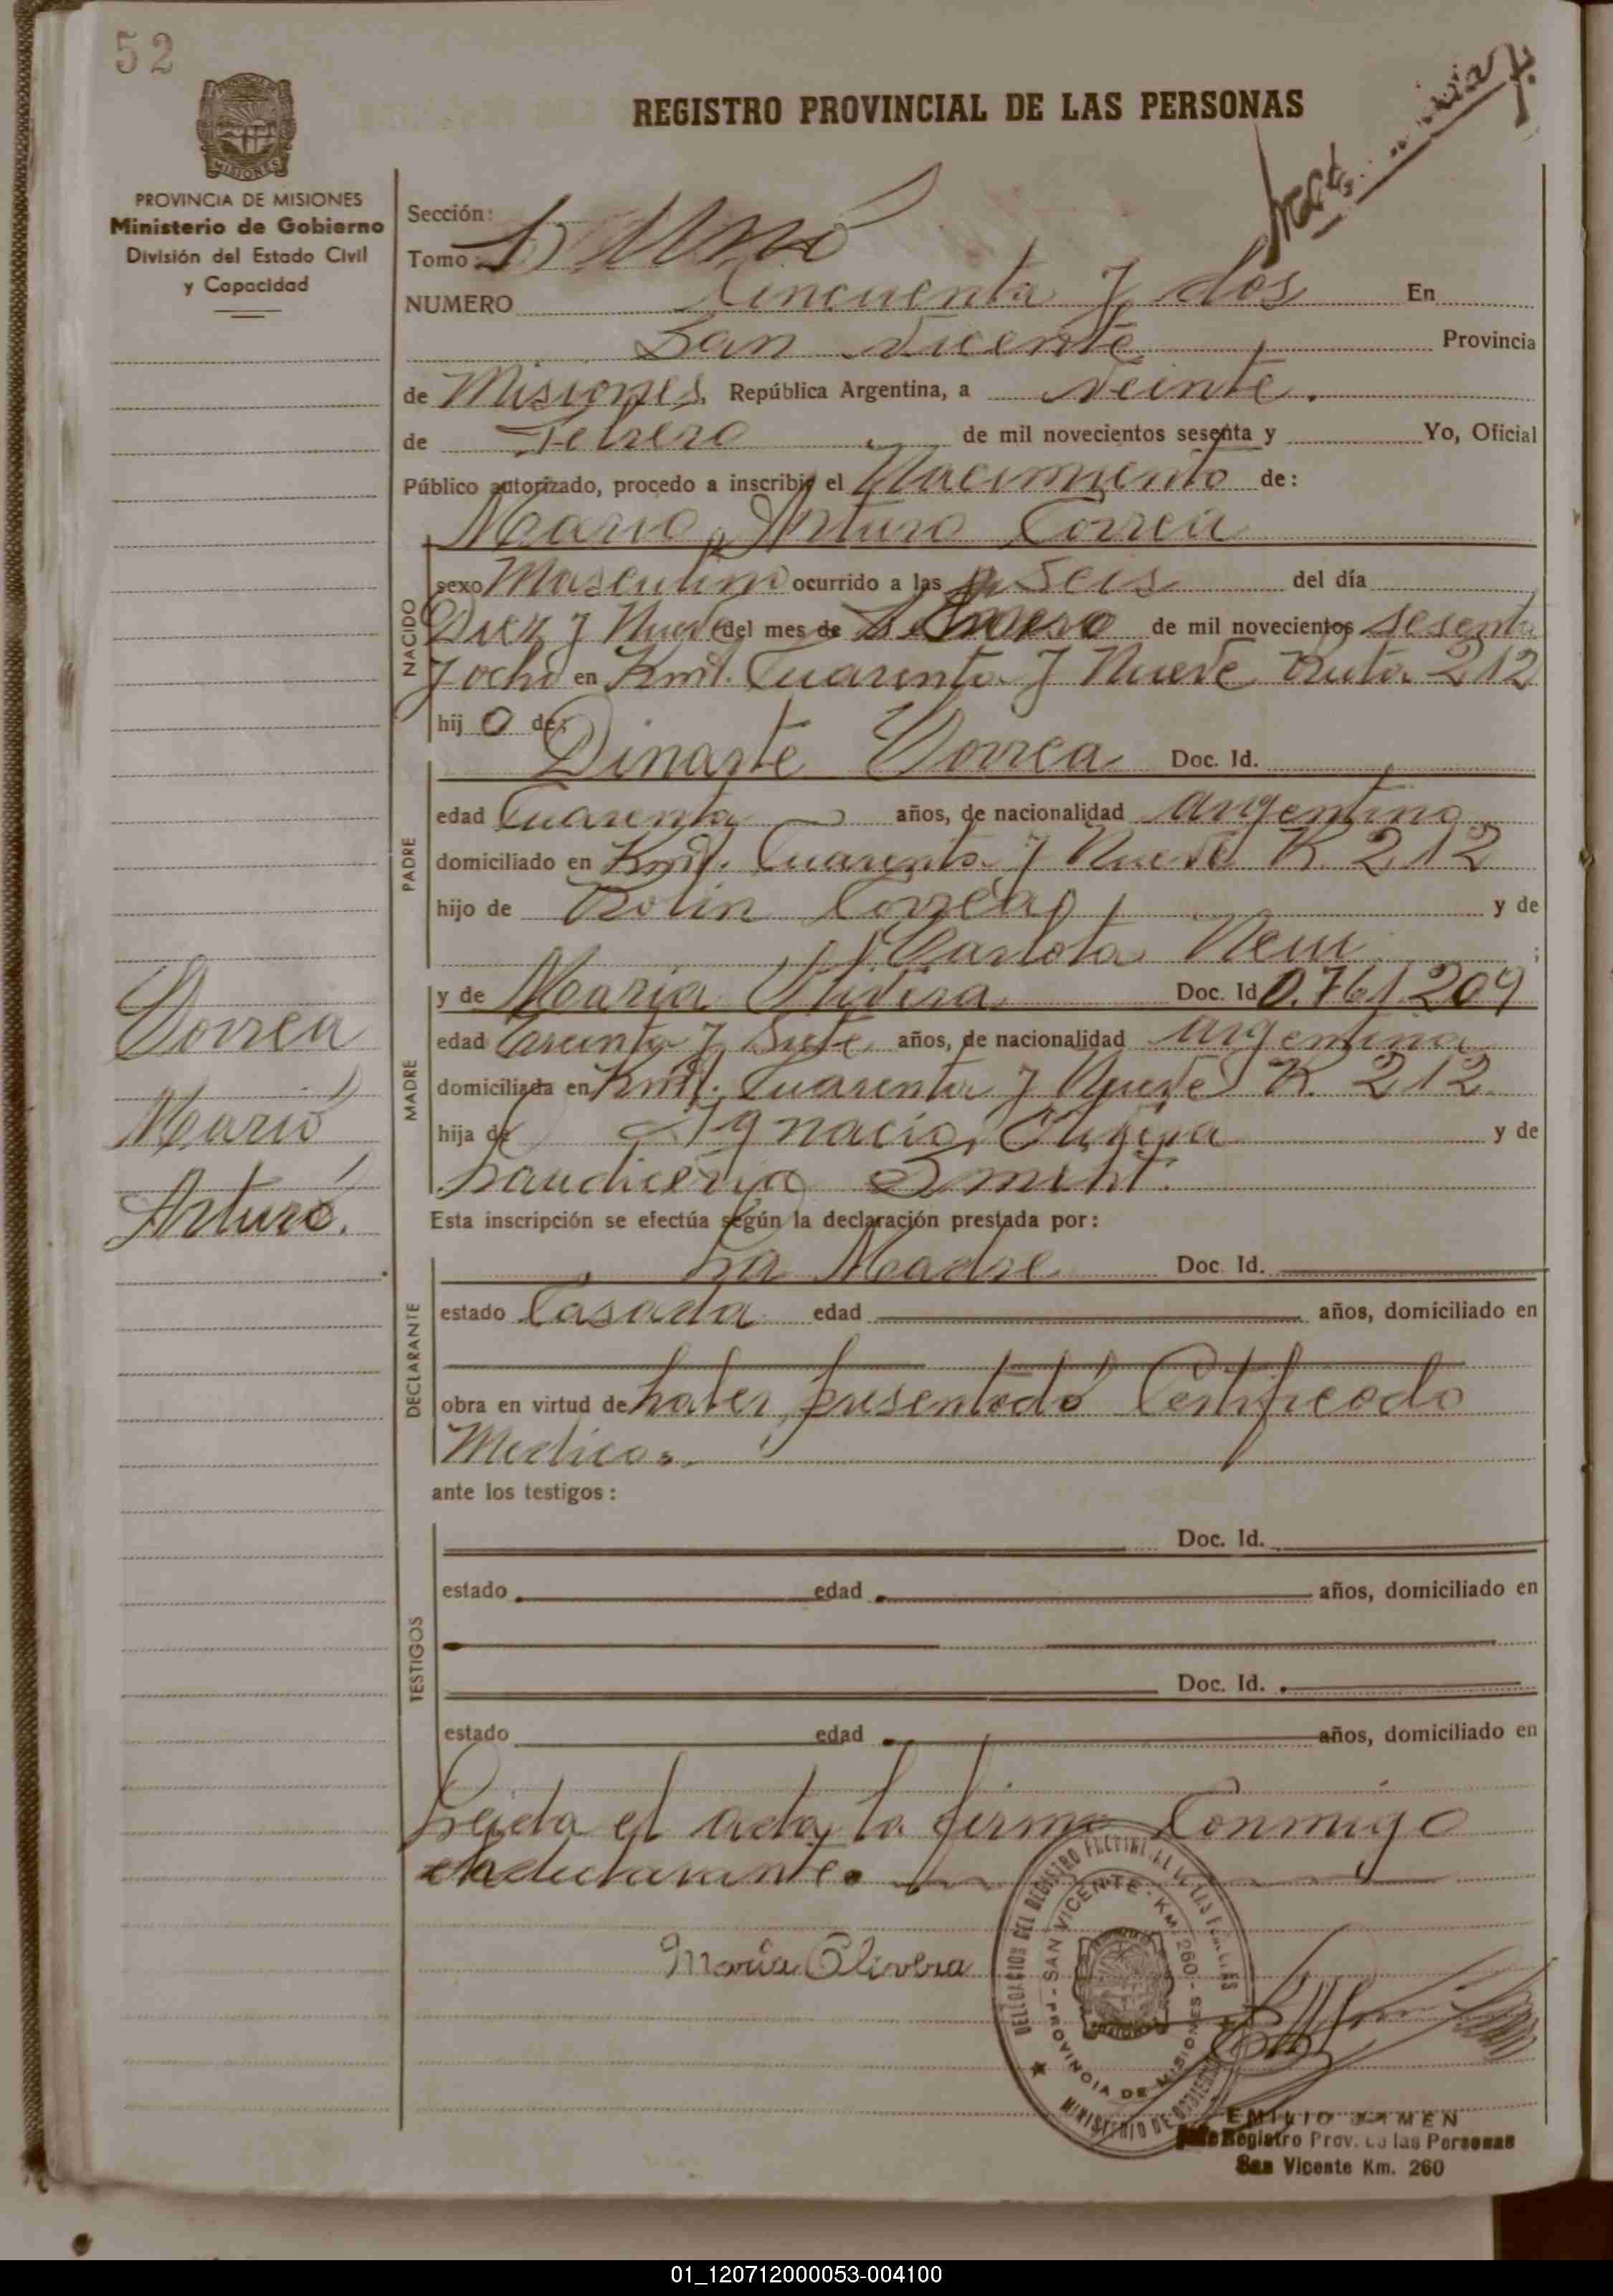 52
REGISTRO PROVINCIAL DE LAS PERSONAS
PROVINCIA DE MISIONES
Ministerio de Gobierno
División del Estado Civil
y Capacidad
Sección:
Tomo: Uno
NUMERO Cincuenta y dos En
San Vicente Provincia
de Misiones, República Argentina, a veinte.
de Febrero de mil novecientos sesenta y Yo, Oficial
Público autorizado, procedo a inscribir el Nacimiento de:
Mario Arturo Correa
NACIDO
sexo Masculino ocurrido a las Seis del día
Diez y Nueve del mes de Enero de mil novecientos sesenta
y ocho en Kmt. Cuarenta y Nueve Ruta 212
hijo de:
PADRE
Dinarte Correa Doc. Id.
edad Cuarenta años, de nacionalidad argentino
domiciliado en Kmt. Cuarenta y Nueve R. 212
hijo de Rolin Correa y de
Carlota Neni ;
MADRE
y de Maria Olivera Doc. Id 0.761.209
edad treinta y Siete años, de nacionalidad argentina
domiciliada en Kmt. Cuarenta y Nueve R. 212
hija de Ignacio Olivera y de
Laudicena Smiht.
Correa
Mario
Arturo.
Esta inscripción se efectúa según la declaración prestada por:
DECLARANTE
La Madre Doc. Id.
estado Casada edad años, domiciliado en
obra en virtud de haber presentado Certificado
Medico.
ante los testigos:
TESTIGOS
Doc. Id.
estado edad años, domiciliado en
Doc. Id.
estado edad años, domiciliado en
Leida el acta, la firma Conmigo
declarante.
Maria Olivera
DELEGACION DEL REGISTRO PROVINCIAL DE LAS PERSONAS
SAN VICENTE - KM 260 - PROVINCIA DE MISIONES
MINISTERIO DE GOBIERNO
EMILIO
Jefe Registro Prov. de las Personas
San Vicente Km. 260
01_120712000053-004100